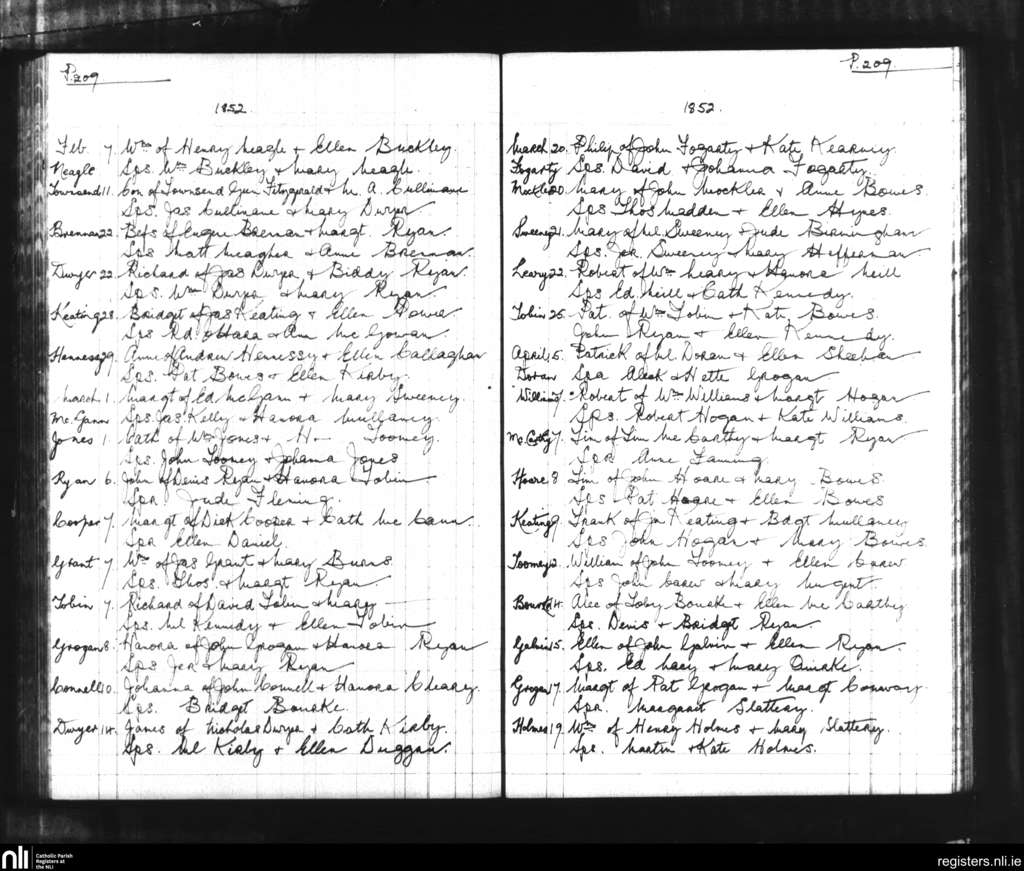 P.209
1852.
Feb. 7. Wm of Henry Neagle + Ellen Buckley.
Neagle Sps. Wm Buckley + Mary Neagle.
Townsend 11. Con of Townsend Fitzgerald + M. A. Cullinane
Sps. Jas Cullinane + Mary Dwyer
Brennan 22. of Brennan + Margt. Ryan.
Sps Matt Meagher + Anne Brennan.
Dwyer 22. Richard of Jas Dwyer + Biddy Ryan
Sps. Wm Dwyer + Mary Ryan.
Keating 28. Bridget of Jas Keating + Ellen Power
Sps Rd. O'Hara + Ann McGowan.
Hennessy 29. Anne of Andrew Hennessy + Ellen Callaghan
Sps. Pat Bowes + Ellen Kirby.
March 1. Margt of Ed McGann + Mary Sweeney.
McGann Sps. Jas Kelly + Hanora Mullaney.
Jones 1. Cath of Wm Jones + H— Toomey.
Sps. John Toomey + Johanna Jones
Ryan 6. John of Denis Ryan + Hanora Tobin
Spr. Jude Fleming.
Cooper 7. Margt of Dick Cooper + Cath McCann.
Spr Ellen Daniel.
Grant 7. Wm of Jas Grant + Mary Burns
Sps. Thos + Margt Ryan
Tobin 7. Richard of David Tobin + Mary —
Sps. Ml Kennedy + Ellen Tobin
Grogan 8. Hanora of John Grogan + Hanora Ryan
Sps Jer + Mary Ryan
Connell 10. Johanna of John Connell + Hanora Cleary.
Sps. Bridget Bourke.
Dwyer 14. James of Nicholas Dwyer + Cath Kirby.
Sps. Ml Kirby + Ellen Duggan.
P.209.
1852.
March 20. Philip of John Fogarty + Kate Kearney
Fogarty Sps. David + Johanna Fogarty.
Mockler 20. Mary of John Mockler + Anne Bowes
Sps Thos Madden + Ellen Hynes.
Sweeney 21. Mary of Ml Sweeney + Jude Birmingham
Sps. Jer. Sweeney + Mary Heffernan
Leary 22. Robert of Wm Leary + Hanora Neill
Sps Ed. Neill + Cath Kennedy.
Tobin 25. Pat. of Wm Tobin + Kate Bowes.
John Ryan + Ellen Kennedy.
April 5. Patrick of Ml Doran + Ellen Sheehan
Doran Spr Aleck + Hette Grogan.
Williams 7. Robert of Wm Williams + Margt Hogan
Sps. Robert Hogan + Kate Williams.
McCarthy 7. Tim of Tim McCarthy + Margt Ryan
Spr Anne Laning.
Hoare 8 Tim of John Hoare + Mary Bowes
Sps Pat Hoare + Ellen Bowes
Keating 9. Frank of Jn Keating + Bdgt Mullaney
Sps John Hogan + Mary Bowes.
Toomey 12. William of John Toomey + Ellen Carew
Sps John Carew + Mary Nugent.
Bourke 14. Alec of Toby Bourke + Ellen McCarthy
Sps. Denis + Bridget Ryan.
Galvin 15. Ellen of John Galvin + Ellen Ryan.
Sps. Ed Lacy + Mary Quirke.
Grogan 17. Margt of Pat Grogan + Margt Conway.
Spr. Margaret Slattery.
Holmes 19. Wm of Henry Holmes + Mary Slattery.
Sps. Martin + Kate Holmes.
nli
Catholic Parish
Registers at
the NLI
registers.nli.ie